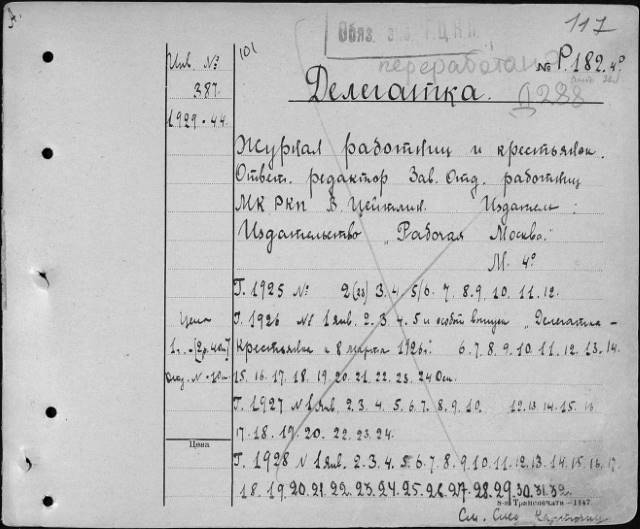 А.
117
Обяз. экз. Г.Ц.К.П.
Инв. №
101
переработана
№ Р. 182. 4°
387
Делегатка.
Д288
1929 - 44
Журнал работниц и крестьянок.
Ответ. редактор Зав. Отд. работниц
МК РКП В. Цейтлин. Издатель:
Издательство "Рабочая Москва."
М. 4°
Г. 1925 № 2(23) 3. 4. 5/6. 7. 8. 9. 10. 11. 12.
Цена
Г. 1926 № 1 янв. 2. 3. 4. 5 и особый выпуск "Делегатка –
Крестьянке к 8 марта 1926 г. 6. 7. 8. 9. 10. 11. 12. 13. 14.
15. 16. 17. 18. 19. 20. 21. 22. 23. 24 Дек.
Г. 1927 № 1 янв. 2. 3. 4. 5. 6. 7. 8. 9. 10. 12. 13. 14. 15. 16
17. 18. 19. 20. 22. 23. 24.
Цена
Г. 1928 № 1 янв. 2. 3. 4. 5. 6. 7. 8. 9. 10. 11. 12. 13. 14. 15. 16. 17.
18. 19. 20. 21. 22. 23. 24. 25. 26. 27. 28. 29. 30. 31. 32.
Транспечати – 1847.
См. след. карточку